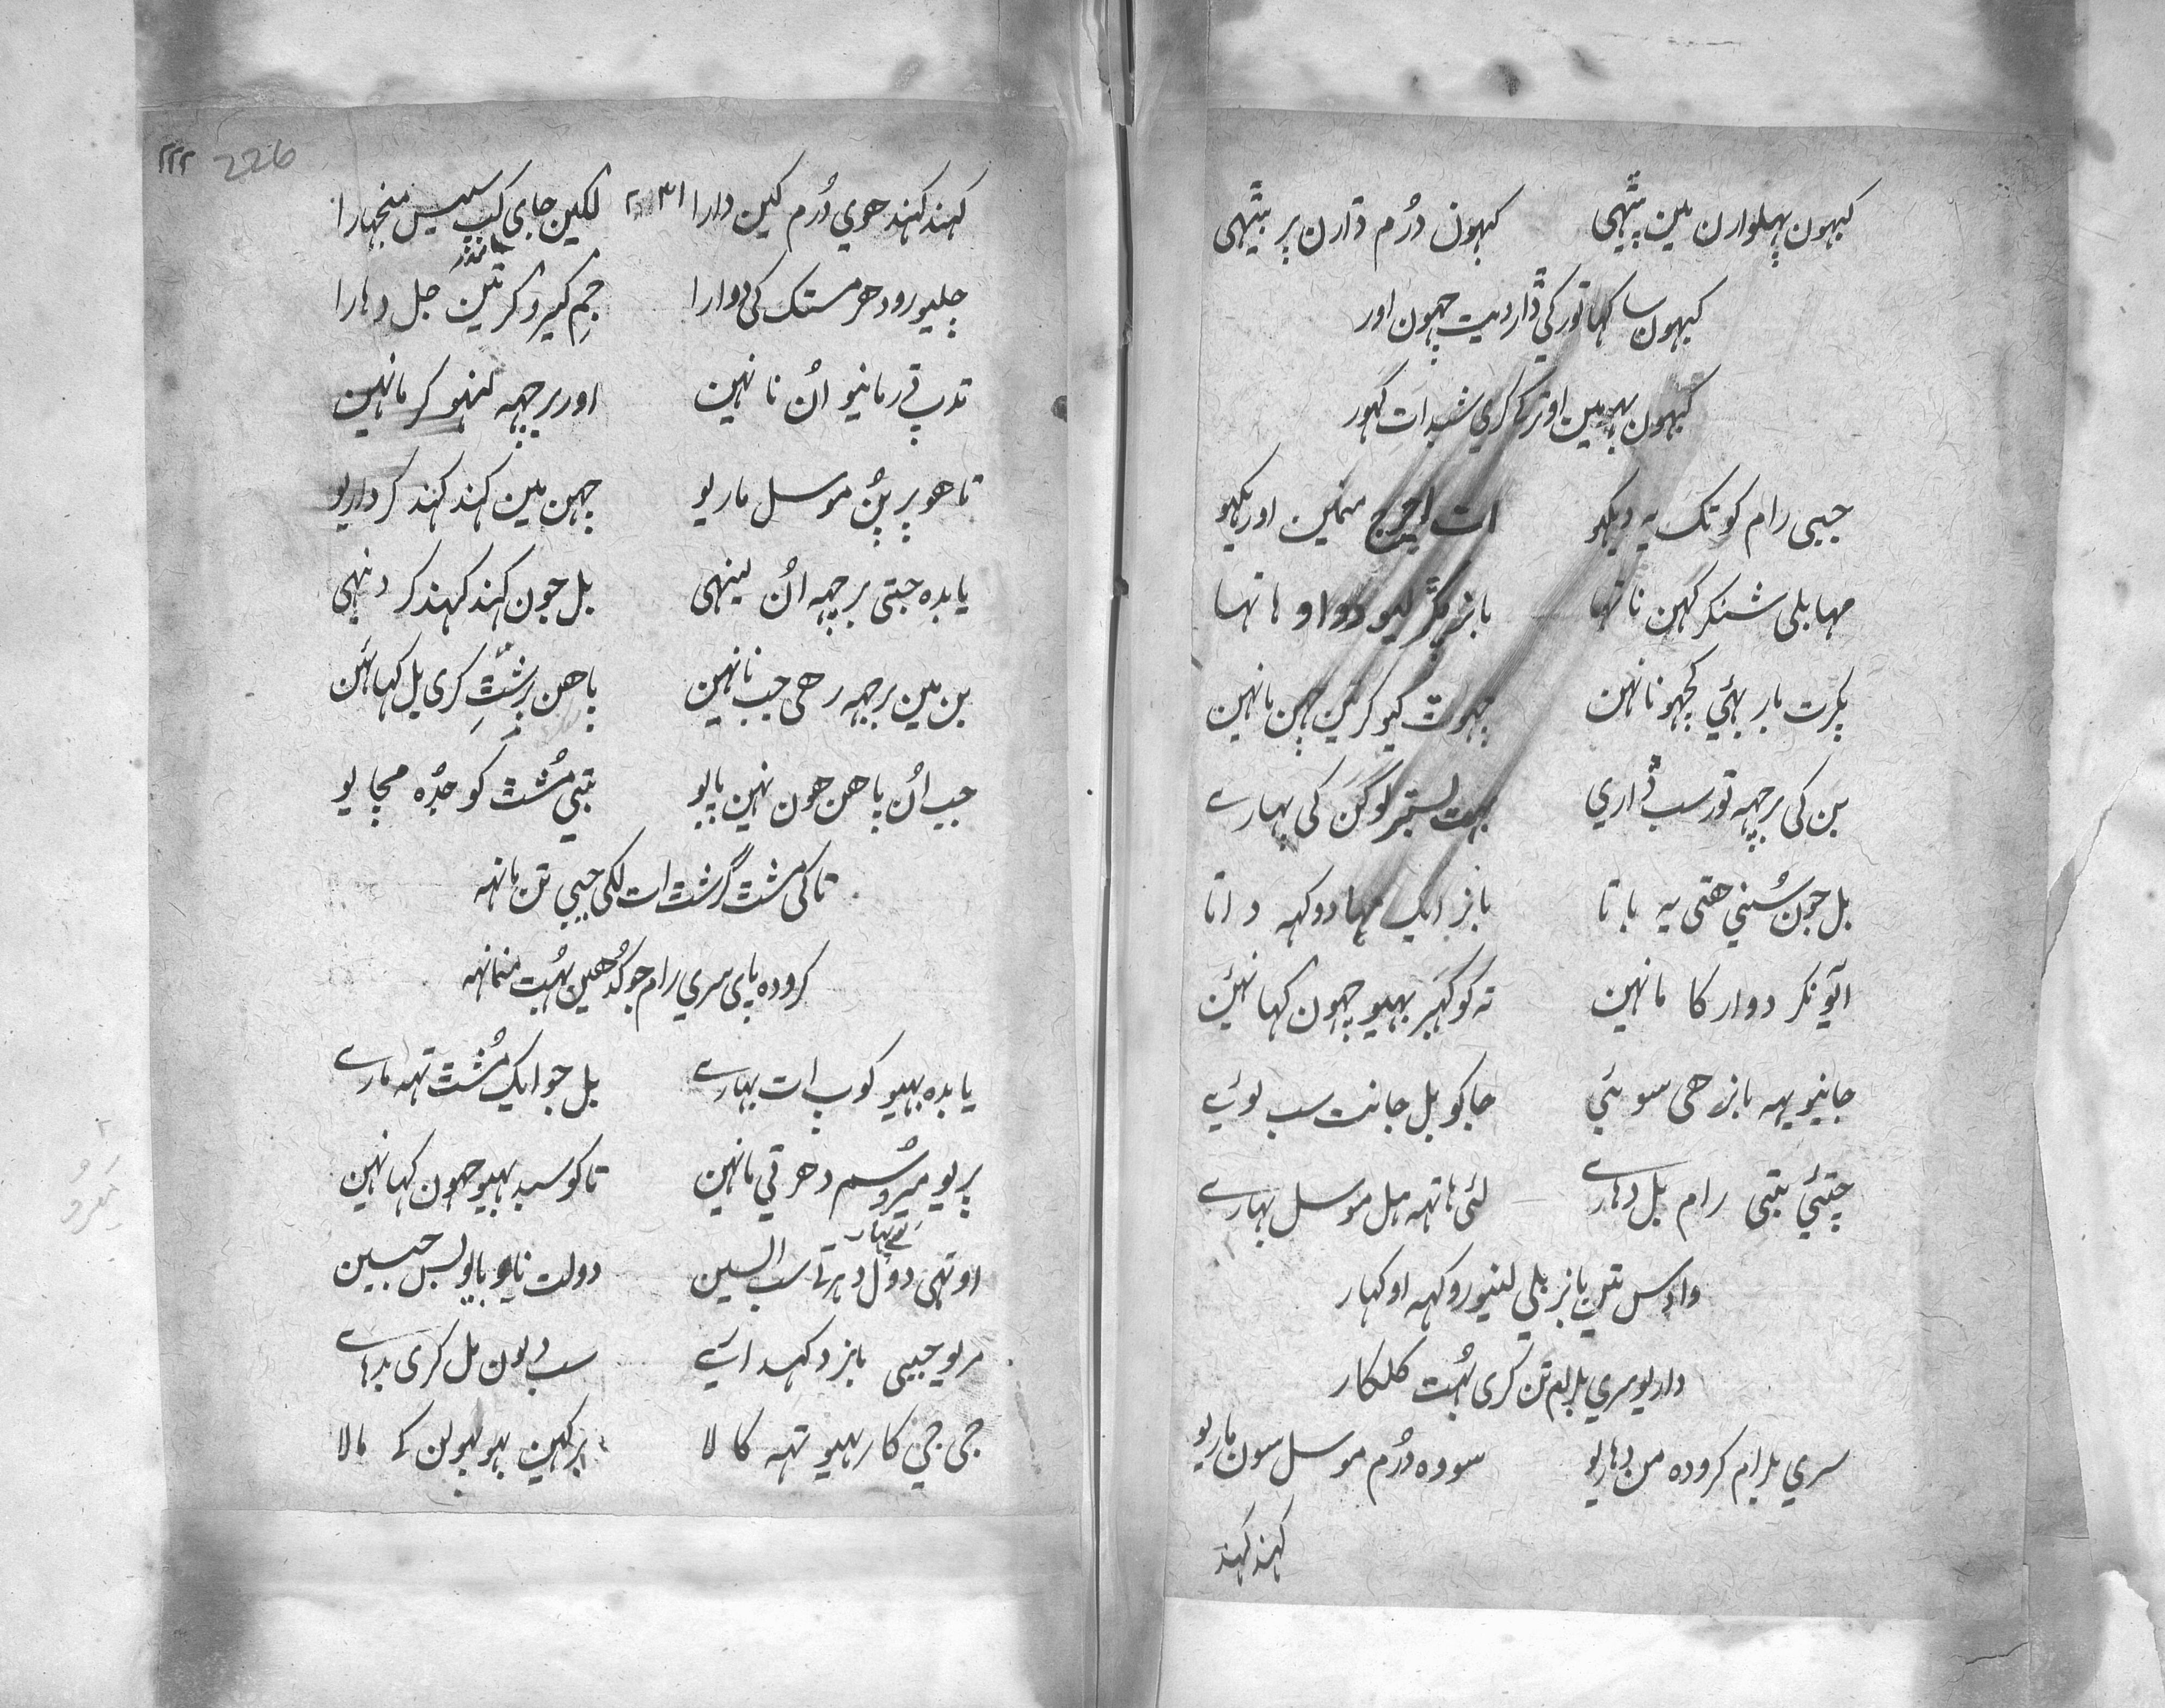 کبهون پهلوارن مین پیٹھی کبهون دُرم ڈارن پر بیٹھی
کبهون ساکها تور کی ڈار دیت چهون اور
کبهون بهومین اوتر کے کری شبدات گهور
جبی رام کوتک یہ دیکهو ات اچرج منمین اوریکهو
مہابلی شنکر کہن ناتها بانر پکڑ لیو دواو هاتها
پکرت بار بهئی کچهو نانہن چهوت کیو کر تین چهن مانہین
بن کی برچهہ تور سب ڈاری بهت لستیر لوگن کی پهارے
بل جون سُنی هتی یہ باتا بانر ایک مہا دوکهہ داتا
آیو نگر دوارکا مانہین تہ کو کهیر بهیو چهون کہانئین
جانیو یہہ بانر هی سوئی جاکو بل جانت سب لوئے
چتئی تبی رام بل دهارے لئی هاتهہ هل موسل بهارے
وادس تین بانر بلی لینو روکهہ اوکهار
داریو سری بلرام تن کری بہُت کلکار
سری بلرام کروده من دهاریو سو وه دُرم موسل سون ماریو
کهند کهند
۲۲۲ 226
کهند کهند هوی دُرم کین دارا لگین جای کپ سیس منجهارا
چلیو رودهر مستک کی دوارا جم گیرو گر تین جل دهارا
تدپ تے رمانیو اُن نانہین اور برچهہ لینهو کر مانہین
تاهو پر پُن موسل ماریو چهن مین کهند کهند کر داریو
یابده جتی برچهہ اُن لینہی بل جون کهند کهند کر دینہی
بن مین برچهہ رهی جب نانہین پاهن برشٹ کری یل کہانئن
جب اُن پاهن هون نہین پایو تبی مُشٹ کو جُده مچایو
تاکی مشٹ گرشٹ ات لگی جبی تن مانهہ
کروده پای سری رام جو کُدهین بہُت منمانهہ
یابده بهیو کوپ ات بهارے بل جو ایک مُشٹ تهہ مارے
پریو میرو سم دهرتی مانہین تاکو سبد بهیو چهون کہانہین
اوتهی دول دهرتے سب السین دولت ناو بایو بس جبسین
مریو جبی بانر دکهد ائے سب دیون مل کری بدهاے
جی جی کار بهیو تهہ کالا برکهین بهو پهولن کے مالا